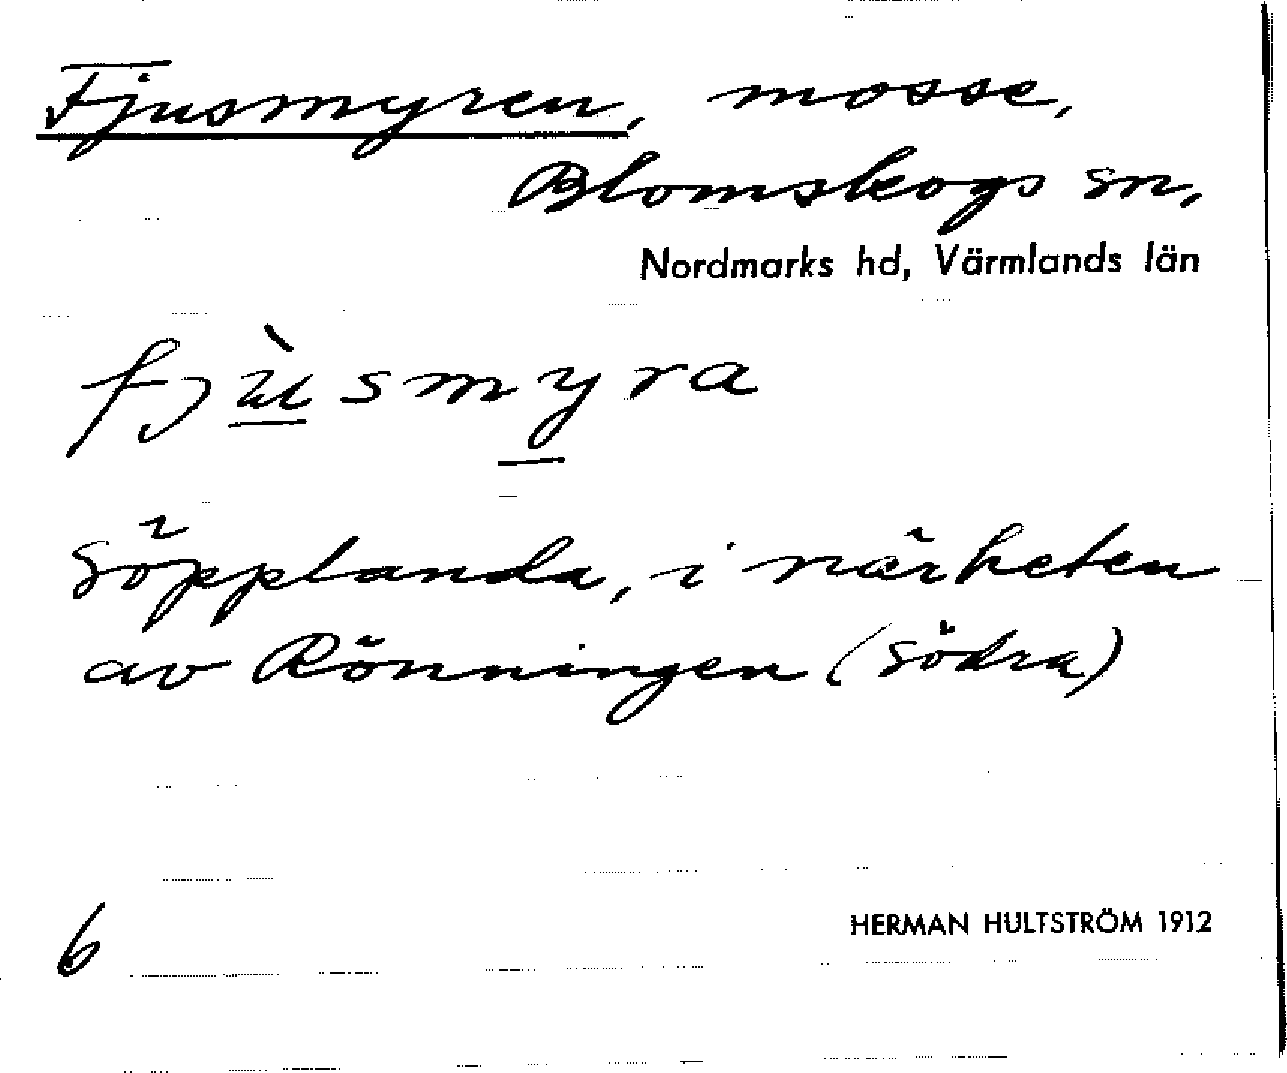 Fjusmyren, mosse,
Blomskogs sn,
Nordmarks hd, Värmlands län
fjùsmyra
Söpplanda, i närheten
av Rönningen (södra)
6
HERMAN HULTSTRÖM 1912